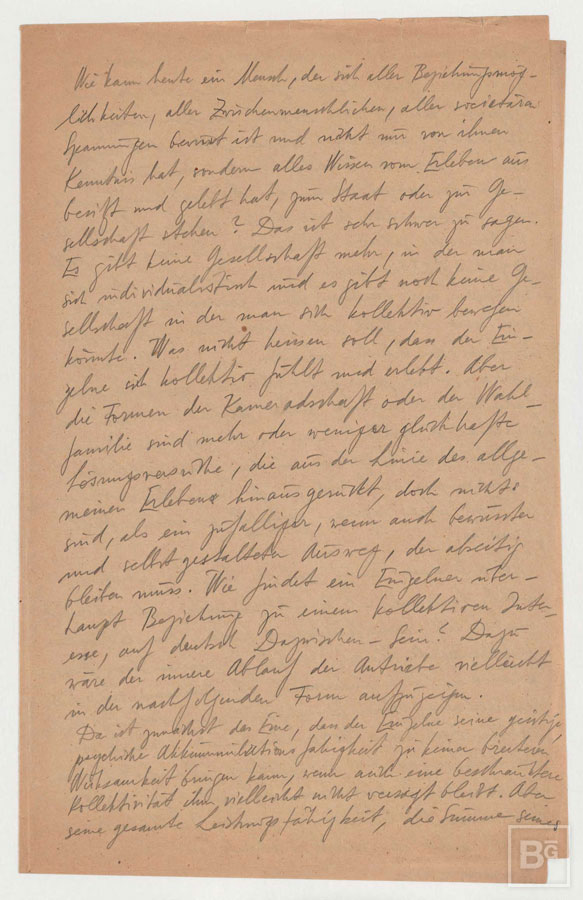 Wie kann heute ein Mensch, der sich aller Beziehungsmög-
lichkeiten, aller Zwischenmenschlichen, aller societären
Spannungen bewusst ist und nicht nur von ihnen
Kenntnis hat, sondern alles Wissen vom Erleben aus
besitzt und gelebt hat, zum Staat oder zu Ge-
sellschaft stehen? Das ist sehr schwer zu sagen.
Es gibt keine Gesellschaft mehr, in der man
sich individualistisch und es gibt noch keine Ge-
sellschaft in der man sich kollektiv bewegen
könnte. Was nicht heissen soll, dass der Ein-
zelne sich kollektiv fühlt und erlebt. Aber
die Formen der Kameradschaft oder der Wahl-
familie sind mehr oder weniger glückhafte
Lösungsversuche, die aus der Linie des allge-
meinen Erlebens hinausgerückt, doch nichts
sind, als ein zufälliger, wenn auch bewusster
und selbst gestalteter Ausweg, der abseitig
bleiben muss. Wie findet ein Einzelner über-
haupt Beziehung zu einem kollektiven Inter-
esse, auf deutsch Dazwischen-Sein? Dazu
wäre der innere Ablauf der Antriebe vielleicht
in der nachfolgenden Form aufzuzeigen.
Da ist zunächst das Eine, dass der Einzelne seine geistige,
psychische fähigkeit zu keiner breiteren
Wirksamkeit bringen kann, wenn auch eine beschränktere
Kollektivität ihm vielleicht nicht versagt bleibt. Aber
seine gesamte Leistungsfähigkeit, die Summe seines
BG